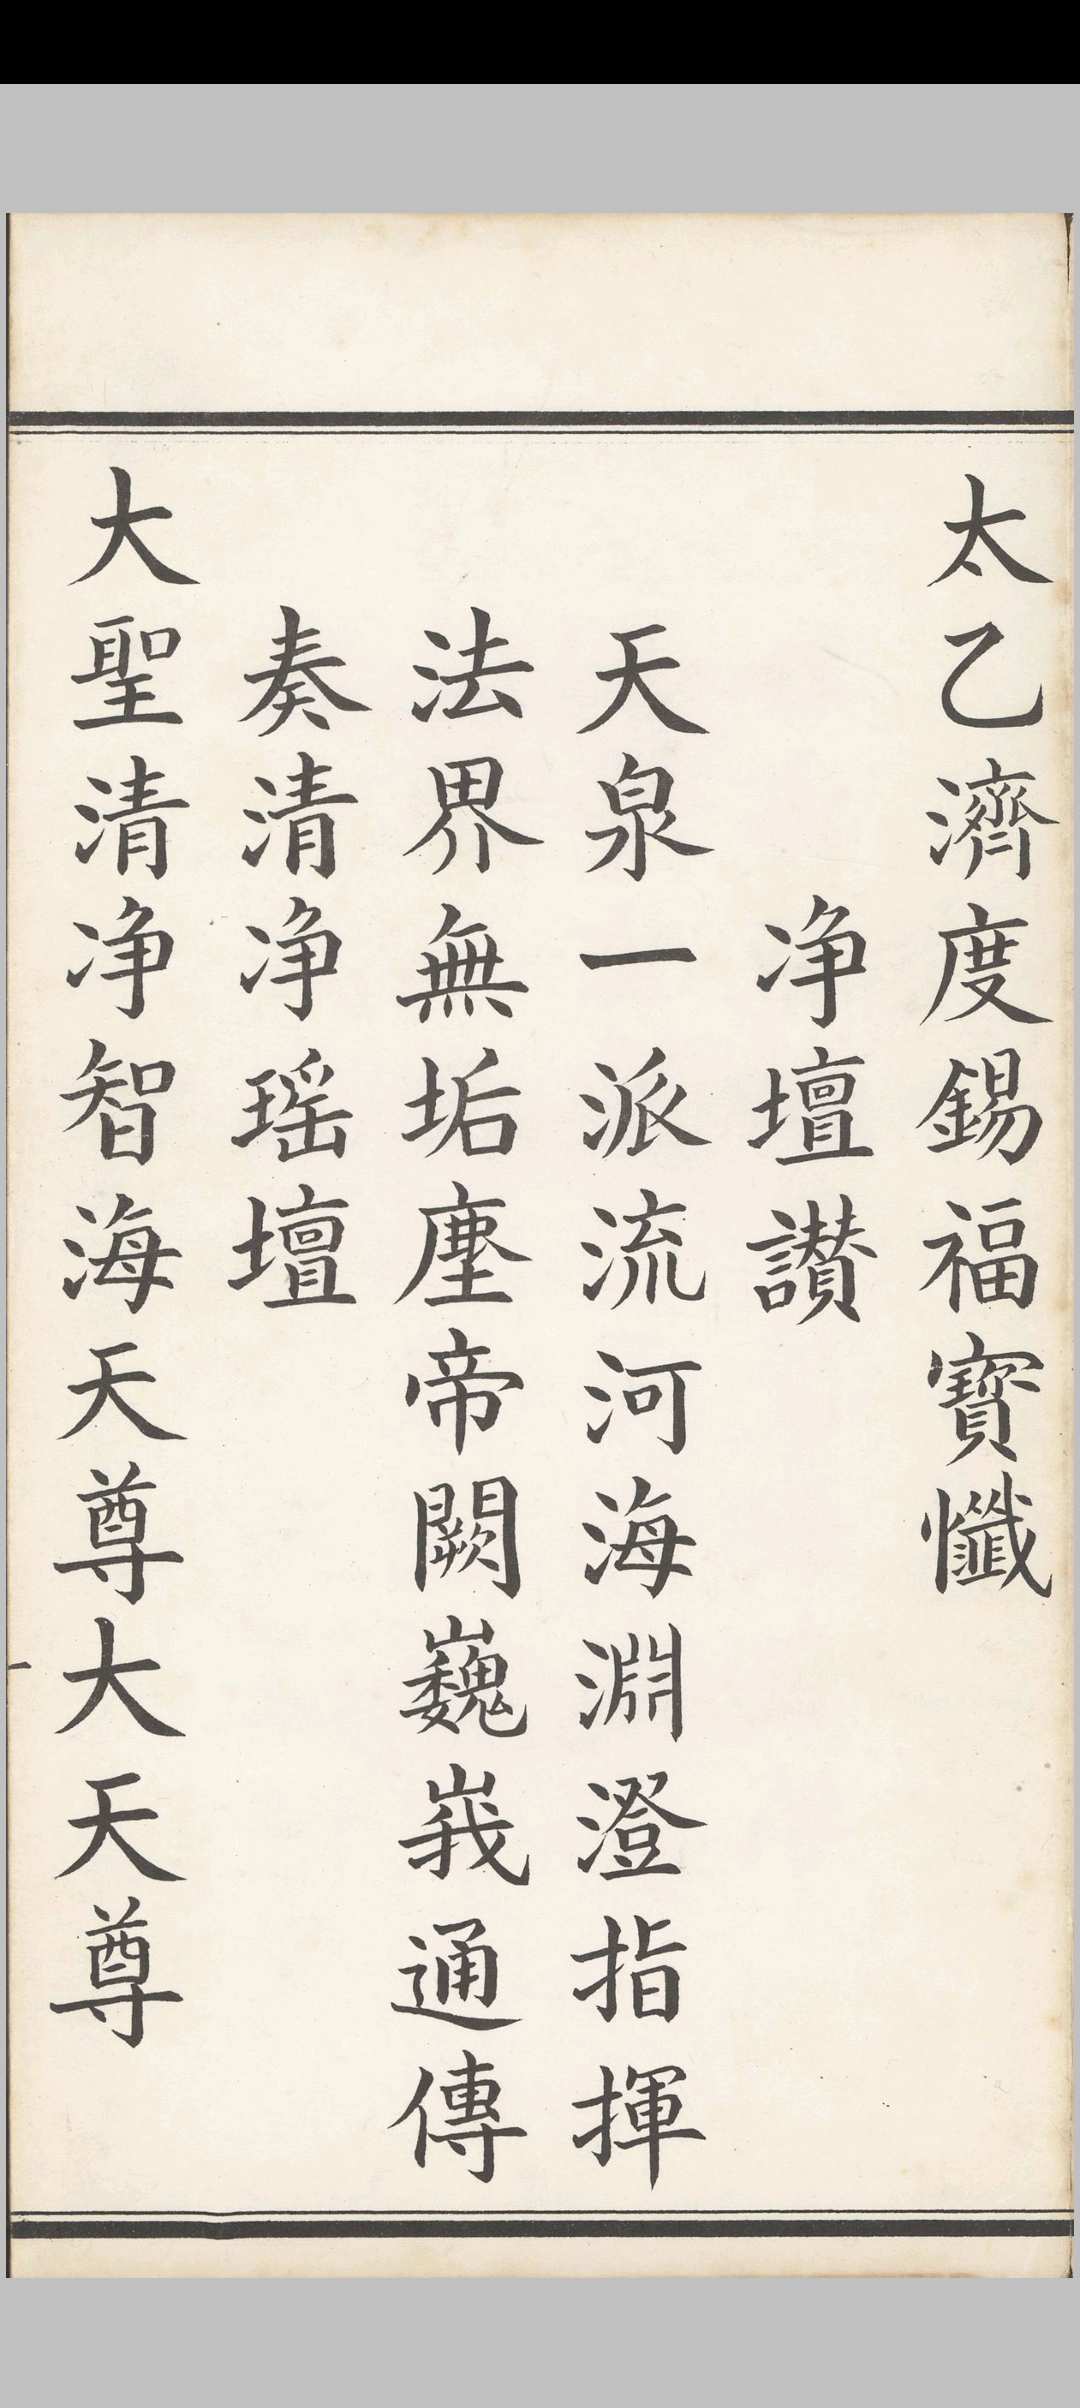 太乙濟度錫福寶懺
净壇讚
天泉一派流河海淵澄指揮
法界無垢塵帝闕巍峩通傳
奏清净瑶壇
大聖清净智海天尊大天尊